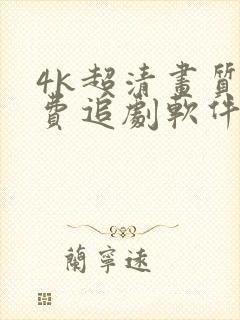 4k超清畫質
費追劇軟件
蘭寧遠